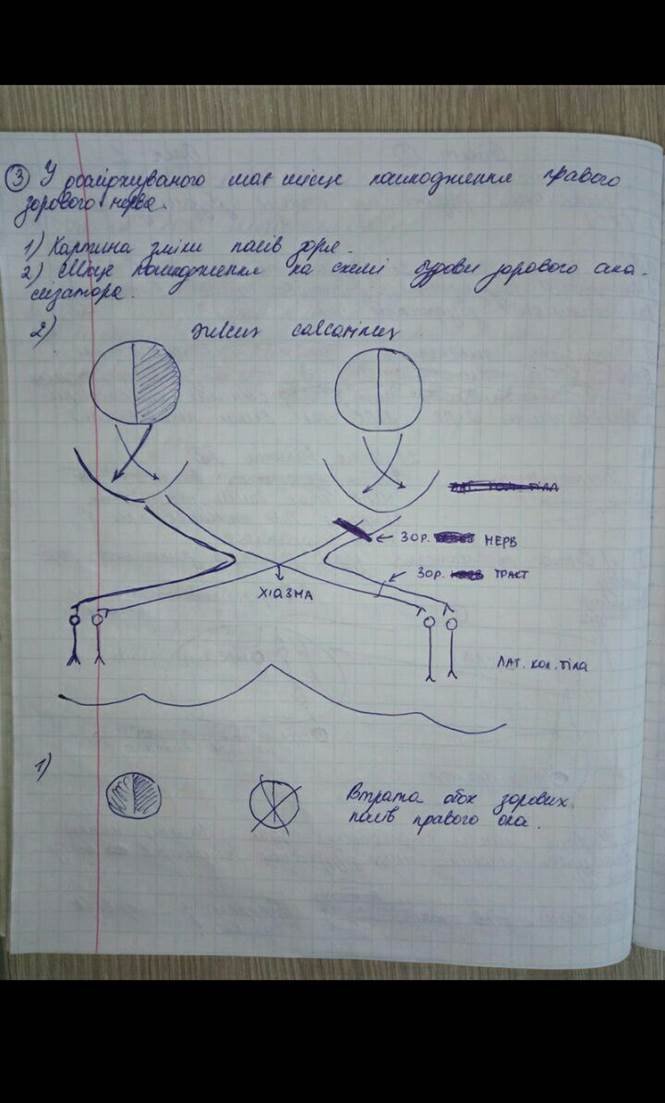 ③ У досліджуваного має місце пошкодження правого
зорового нерва.
1) Картина зміни полів зору.
2) Місце пошкодження на схемі будови зорового ана-
лізатора.
2) sulcus calcarinus
ЗОР. НЕРВ
ЗОР. ТРАКТ
ХІАЗМА
ЛАТ. КОЛ. ТІЛА
1)
Втрата обох зорових
полів правого ока.